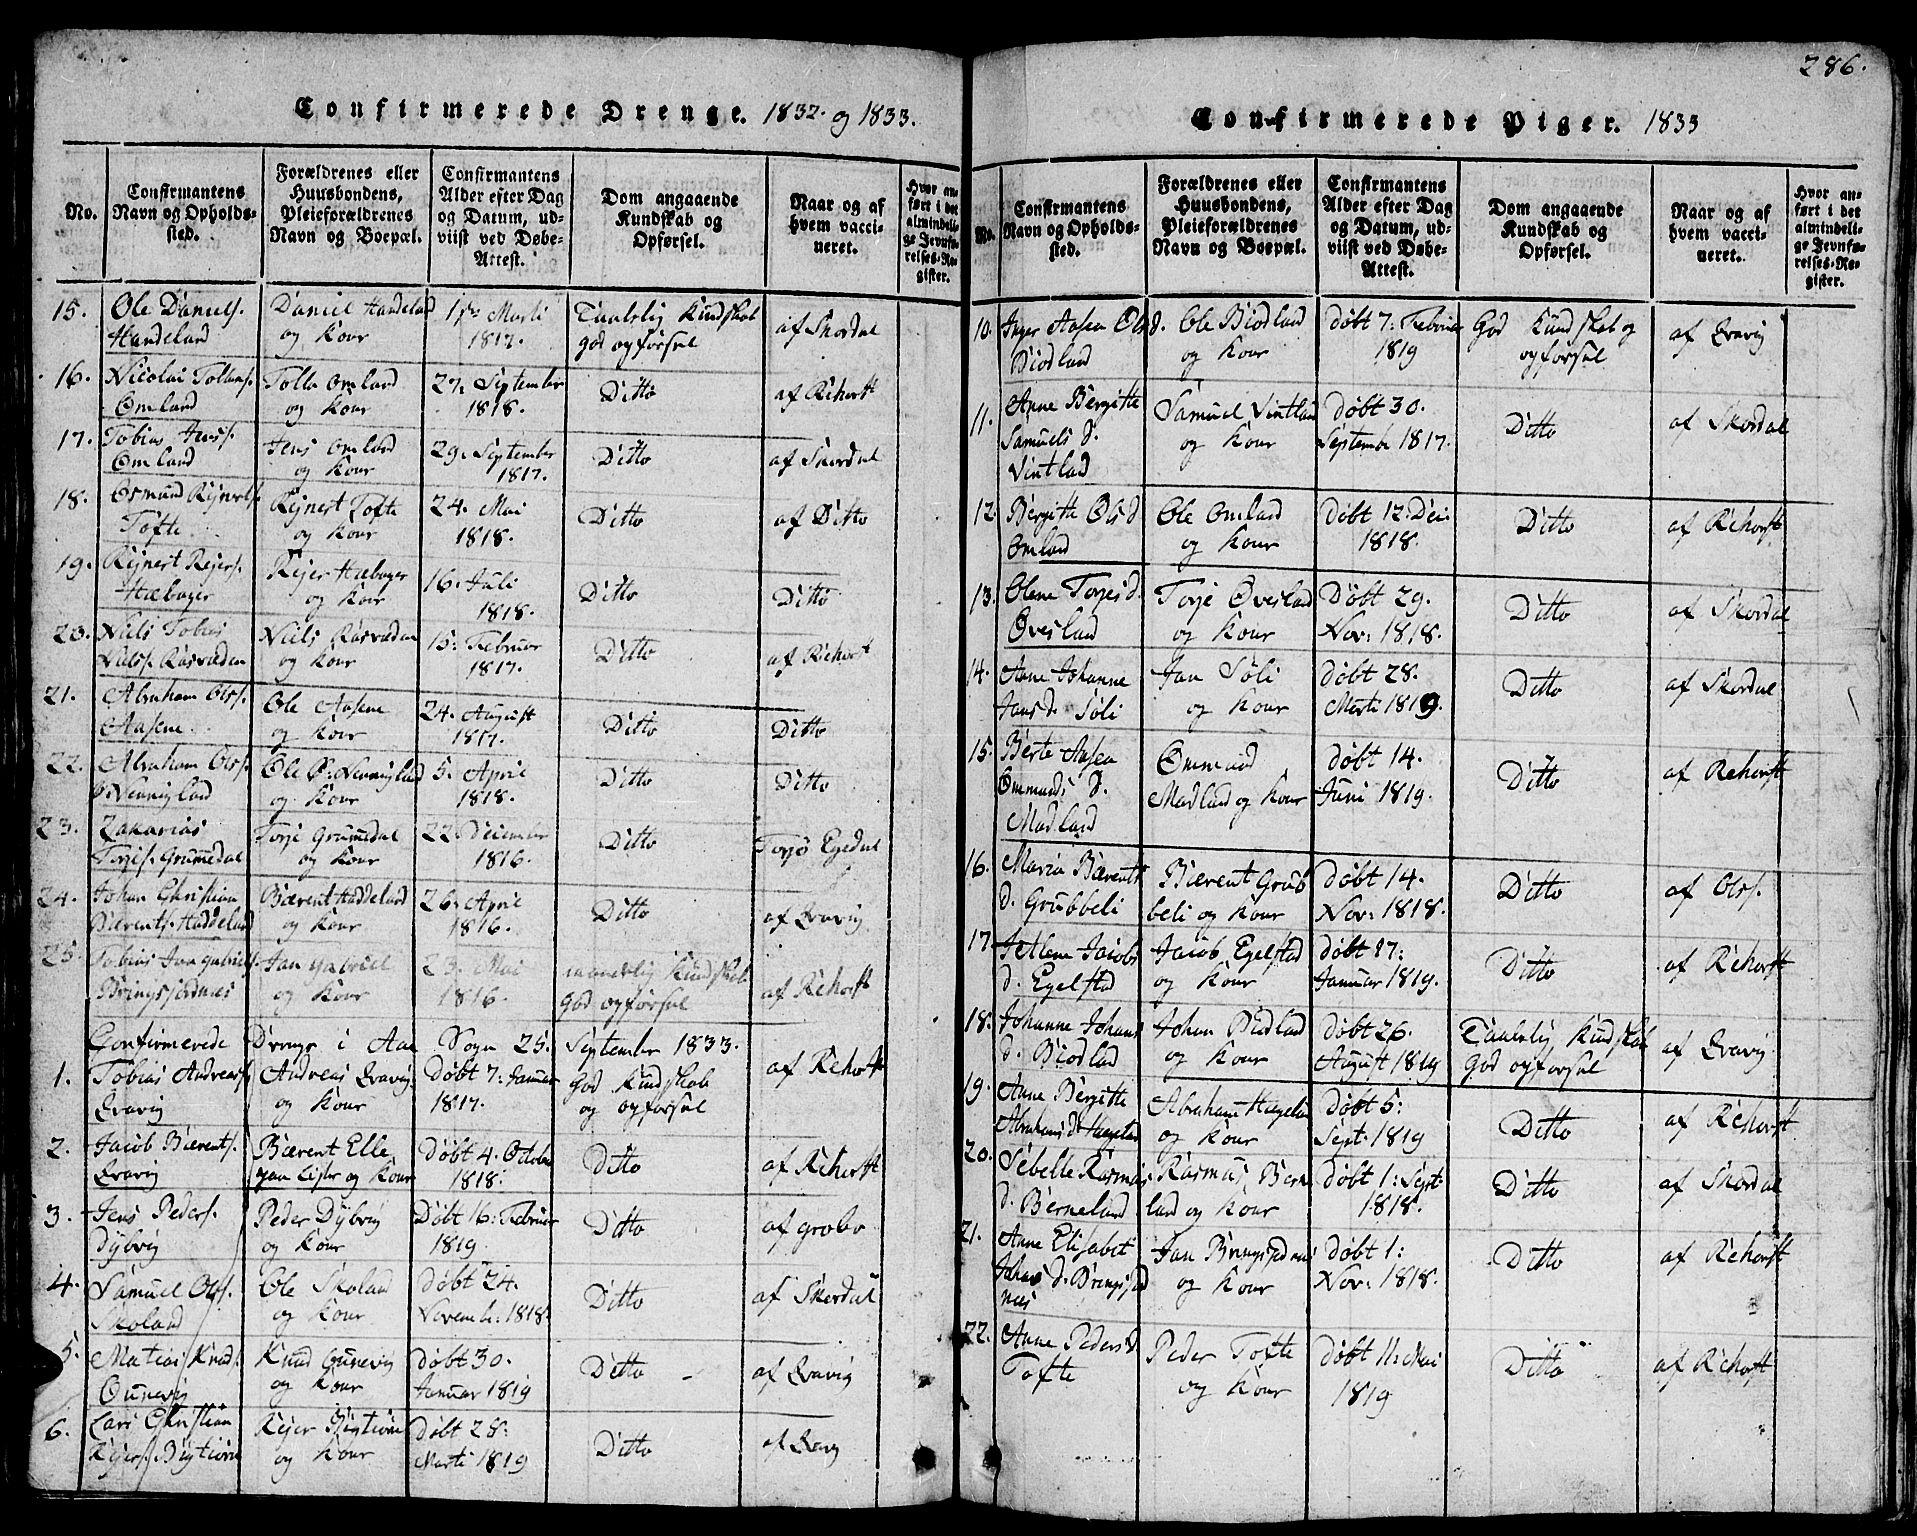 286.
Confirmerede Drenge. 1832. og 1833.
No.
Confirmantens
Navn og Opholds-
sted.
Forældrenes eller
Huusbondens,
Pleieforældrenes
Navn og Boepæl.
Confirmantens
Alder efter Dag
og Datum, ud-
viist ved Døbe-
Attest.
Dom angaaende
Kundskab og
Opførsel.
Naar og af
hvem vacci-
neret.
Hvor an-
ført i det
almindeli-
ge Jevnfø-
relses-Re-
gister.
15. Ole Daniels. Daniel Handeland Marti Taalelig Kundskab af Skordal
Handeland og Kone 1817. god opførsel
16. Nicolai Tollaks. Tolla Omland 27. September Ditto af Rehorst
Omland og Kone 1818.
17. Tobias Jens. Jens Omland 29. September Ditto af Skordal
Omland og Kone 1817.
18. Osmund Rejnerts. Rejnert Tofte 24. Mai Ditto af Ditto
Tofte og Kone 1818.
19. Rejnert Rejers. Rejer Hæbager 16. Juli Ditto Ditto
Hæbager og Kone 1818.
20. Niels Tobias Niels Røsvaden 15. Februar Ditto af Rehorst
Niels. Røsvaden og Kone 1817.
21. Abraham Ols. Ole Aasene 24. August Ditto Ditto
Aasene. og Kone 1817.
22. Abraham Ols. Ole 5. April Ditto Ditto
og Kone 1818.
23. Zakarias Torje Grummedal 22. December Ditto Torjo Egedal
Torjes. Grummedal og Kone 1816.
24. Johan Christian Bærent Haddeland 26. April Ditto af Qvavig
Bærents. Haddeland og Kone 1816.
25. Tobias Jan Gabriels. Jan Gabriel 23. Mai maadelig Kundskab af Rehorst
Bringsjordnes og Kone 1816. god opførsel
Confirmerede Drenge i Aan Sogn 25. September 1833.
1. Tobias Andreas. Andreas Qvavig Døbt 7: Januar God Kundskab af Rehorst
Qvavig og Kone 1817. og opførsel
2. Jacob Bærents. Bærent Elle Døbt 4. October Ditto af Rehorst
Qvavig og Kone 1818.
3. Jens Peders. Peder Dybvig Døbt 16: Februar Ditto af grobo
Dybvig og Kone 1819.
4. Samuel Ols. Ole Skoland Døbt 24. Ditto af Skordal
Skoland og Kone Novemb. 1818.
5. Matias Knuds. Knud Ounevig Døbt 30. Ditto af Qvavig
Ounevig og Kone Januar 1819
6. Lars Christian Rejer Døbt 28. Ditto
Rejers. og Kone Marti 1819
Confirmerede Piger. 1833
No.
Confirmantens
Navn og Opholds-
sted.
Forældrenes eller
Huusbondens,
Pleieforældrenes
Navn og Boepæl.
Confirmantens
Alder efter Dag
og Datum, ud-
viist ved Døbe-
Attest.
Dom angaaende
Kundskab og
Opførsel.
Naar og af
hvem vacci-
neret.
Hvor an-
ført i det
almindeli-
ge Jevnfø-
relses-Re-
gister.
10. Inger Aasea Olsd. Ole Biodland døbt 7: Februar God Kundskab og af Qvavig
Biodland og Kone 1819 opførsel
11. Anne Bergitte Samuel Vintland døbt 30. Ditto af Skordal
Samuels d. og Kone September 1817.
Vintland
12. Bergitte Olsd Ole Omland Døbt 12: Dec: Ditto af Rehorst
Omland og Kone 1818.
13. Olene Torjesd. Torje Øvesland Døbt 29. Ditto af Skordal
Øvesland og Kone Nov: 1818.
14. Anne Johanne Jan Søli døbt 28. Ditto af Skordal
Jansd. Søli og Kone Marti 1819.
15. Berte Aasea Ommund døbt 14. Ditto af Rehorst
Ommunds d. Madland og Kone Juni 1819.
Madland
16. Maria Bærents Bærent Grub døbt 14. Ditto af Ols.
d. Grubbeli beli og Kone Nov: 1818.
17. Jetlene Jacobs Jacob Egelstad døbt 17: Ditto af Rehorst
d. Egelstad og Kone Januar 1819.
18. Johanne Johans Johan Biodland døbt 26. Taalelig Kundskab af Qvavig
d. Biodland og Kone August 1819 God opførsel
19. Anne Bergitte Abraham Hægeland døbt 5: Ditto af Rehorst
Abrahams d. Hægeland og Kone Sept. 1819
20. Sebelle Rasmus Rasmus Berne døbt 1: Sept. Ditto af Skordal
d. Berneland land og Kone 1818.
21. Anne Elisabet Jan Bringsjordnes døbt 1: Ditto af Rehorst
Johans d. Bringsjord og Kone Nov: 1818.
nes
22. Anne Pedersd. Peder Tofte døbt 11: Mai Ditto af Rehorst
Tofte og Kone 1819